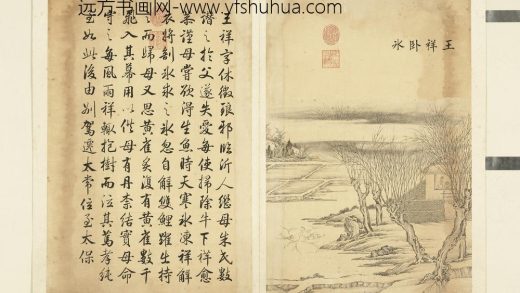 远方书画网-www.yfshuhua.com
王祥卧冰
王祥字休徵琅邪臨沂人繼母朱氏數
譖之於父遂失愛每使掃除牛下祥愈
恭謹母嘗欲得生魚時天寒冰凍祥解
衣將剖冰求之冰忽自解雙鯉躍出持
之而歸母又思黃雀炙復有黃雀數千
飛入其幕用以供母有丹柰結實母命
守之每風雨祥輒抱樹而泣其篤孝純
至如此後由別駕遷太常位至太保